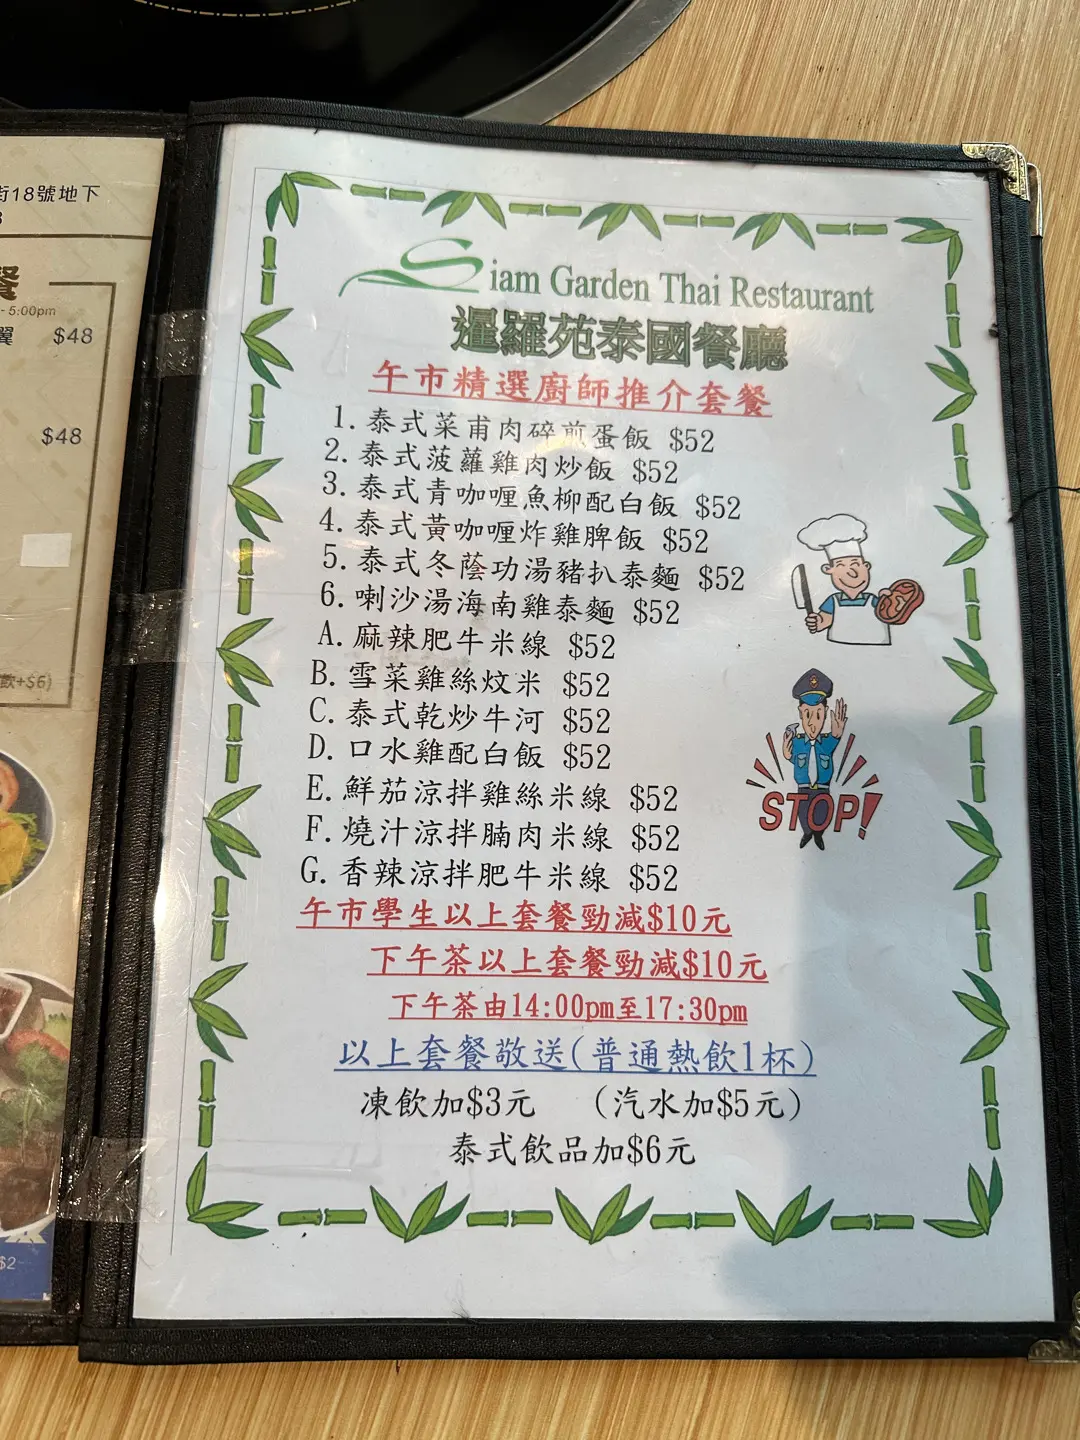 街18號地下
餐
- 5:00pm
翼 $48
$48
飲+$6)
$2
Siam Garden Thai Restaurant
暹羅苑泰國餐廳
午市精選廚師推介套餐
1. 泰式菜甫肉碎煎蛋飯 $52
2. 泰式菠蘿雞肉炒飯 $52
3. 泰式青咖喱魚柳配白飯 $52
4. 泰式黃咖喱炸雞脾飯 $52
5. 泰式冬蔭功湯豬扒泰麵 $52
6. 喇沙湯海南雞泰麵 $52
A. 麻辣肥牛米線 $52
B. 雪菜雞絲炆米 $52
C. 泰式乾炒牛河 $52
D. 口水雞配白飯 $52
E. 鮮茄涼拌雞絲米線 $52
F. 燒汁涼拌腩肉米線 $52
G. 香辣涼拌肥牛米線 $52
STOP!
午市學生以上套餐勁減$10元
下午茶以上套餐勁減$10元
下午茶由14:00pm至17:30pm
以上套餐敬送(普通熱飲1杯)
凍飲加$3元 (汽水加$5元)
泰式飲品加$6元